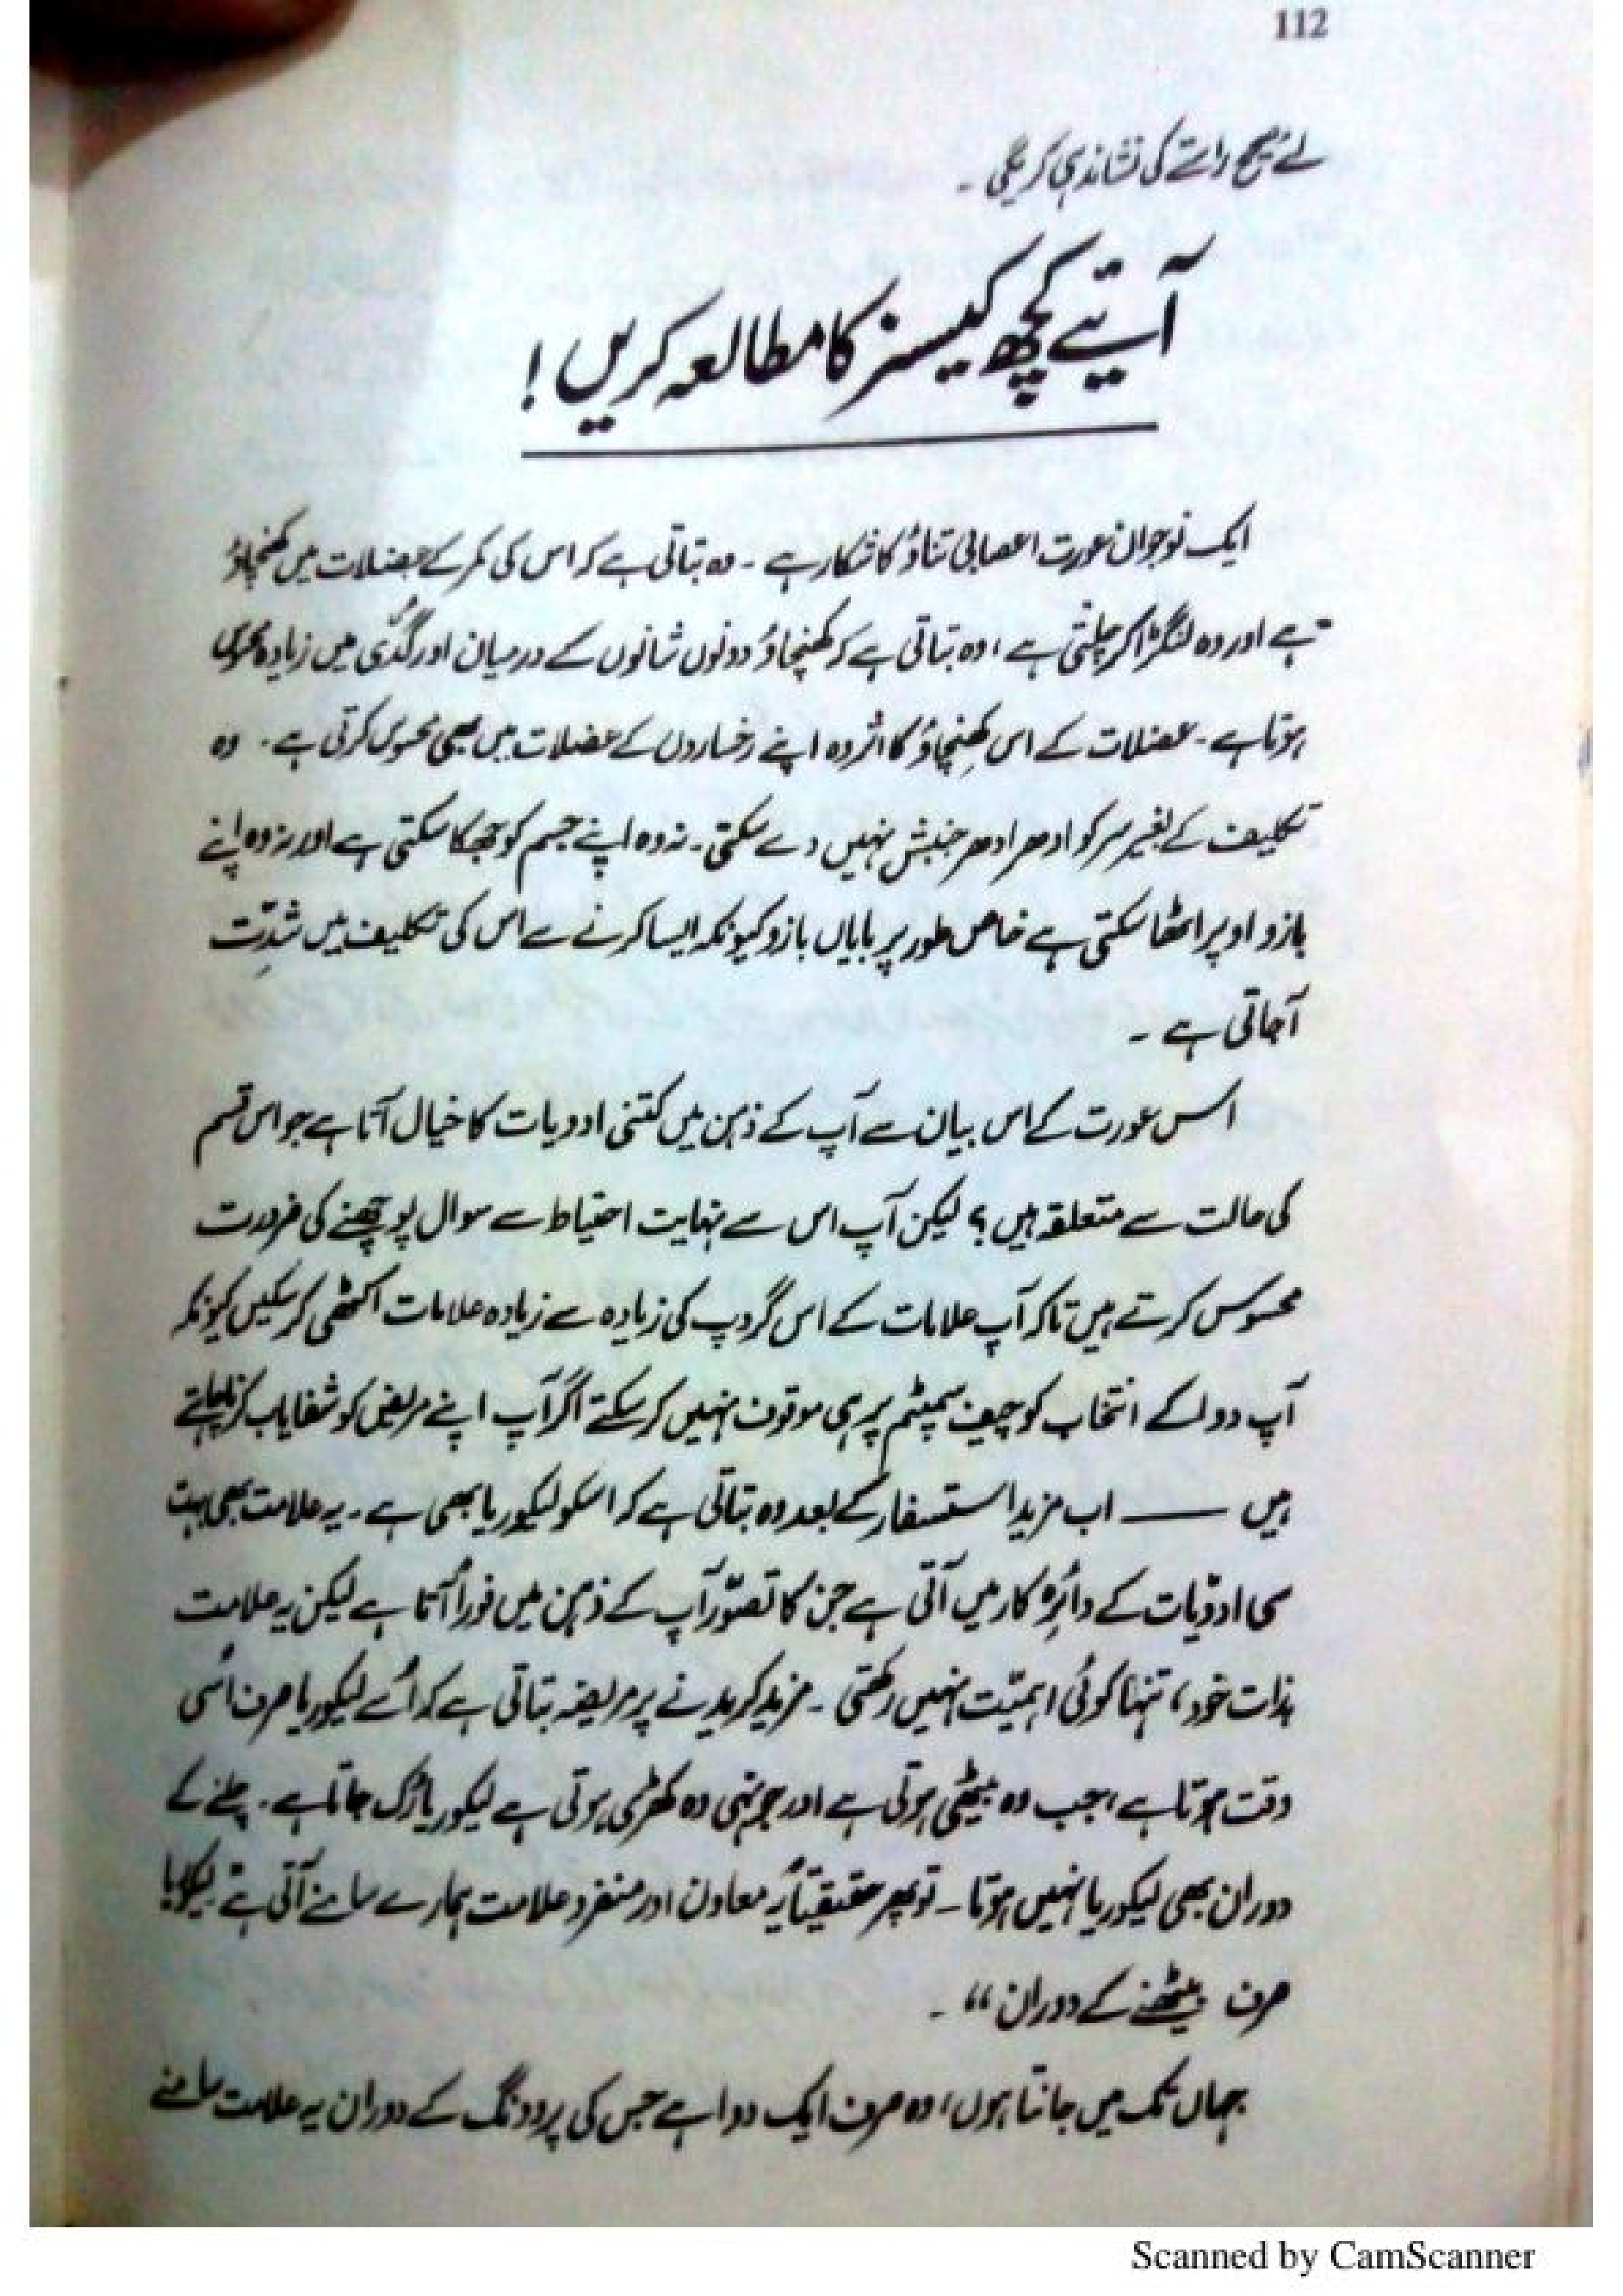 112
لئے صحیح راستے کی نشاندہی کریگی ۔
آئیے کچھ کیسز کا مطالعہ کریں !
ایک نوجوان عورت اعصابی تناؤ کا شکار ہے ۔ وہ بتاتی ہے کہ اس کی کمر کے عضلات میں کھنچاؤ
ہے اور وہ لنگڑا کر چلتی ہے ، وہ بتاتی ہے کہ کھنچاؤ دونوں شانوں کے درمیان اور گُدّی میں زیادہ محسوس
ہوتا ہے ۔ عضلات کے اس کھنچاؤ کا اثر وہ اپنے رخساروں کے عضلات میں بھی محسوس کرتی ہے ۔ وہ
تکلیف کے بغیر سر کو ادھر ادھر جنبش نہیں دے سکتی ۔ نہ وہ اپنے جسم کو جھکا سکتی ہے اور نہ وہ اپنے
بازو اوپر اٹھا سکتی ہے خاص طور پر بایاں بازو کیونکہ ایسا کرنے سے اس کی تکلیف میں شدّت
آجاتی ہے ۔
اس عورت کے اس بیان سے آپ کے ذہن میں کتنی ادویات کا خیال آتا ہے جو اس قسم
کی حالت سے متعلقہ ہیں ؟ لیکن آپ اس سے نہایت احتیاط سے سوال پوچھنے کی ضرورت
محسوس کرتے ہیں تاکہ آپ علامات کے اس گروپ کی زیادہ سے زیادہ علامات اکٹھی کر سکیں کیونکہ
آپ دوا کے انتخاب کو چیف سمپٹم پر ہی موقوف نہیں کر سکتے اگر آپ اپنے مریض کو شفایاب کرنا چاہتے
ہیں ــــــ اب مزید استفسار کے بعد وہ بتاتی ہے کہ اسکو لیکوریا بھی ہے ۔ یہ علامت بھی بہت
سی ادویّات کے دائرہِ کار میں آتی ہے جن کا تصوّر آپ کے ذہن میں فوراً آتا ہے لیکن یہ علامت
بذات خود ، تنہا کوئی اہمیّت نہیں رکھتی ۔ مزید کریدنے پر مریضہ بتاتی ہے کہ اُسے لیکوریا صرف اُسی
وقت ہوتا ہے ، جب وہ بیٹھی ہوتی ہے اور جونہی وہ کھڑی ہوتی ہے لیکوریا رُک جاتا ہے ۔ چلنے کے
دوران بھی لیکوریا نہیں ہوتا ۔ تو پھر حقیقتاً یہ معاون اور منفرد علامت ہمارے سامنے آتی ہے "لیکوریا
صرف بیٹھنے کے دوران“ ۔
جہاں تک میں جانتا ہوں ، وہ صرف ایک دوا ہے جس کی پروونگ کے دوران یہ علامت سامنے
Scanned by CamScanner